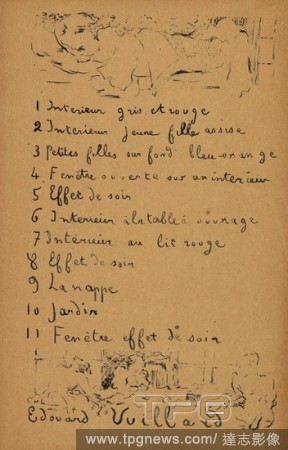 1 Interieur gris et rouge
2 Interieur jeune fille assise
3 Petites filles sur fond bleu-orange
4 Fenêtre ouverte sur un interieur
5 Effet de soir
6 Interieur à la table à ouvrage
7 Intérieur au lit rouge
8 Effet de soir
9 La nappe
10 Jardin
11 Fenêtre effet de soir
Edouard Vuillard
TPG
www.tpgnews.com/達志影像